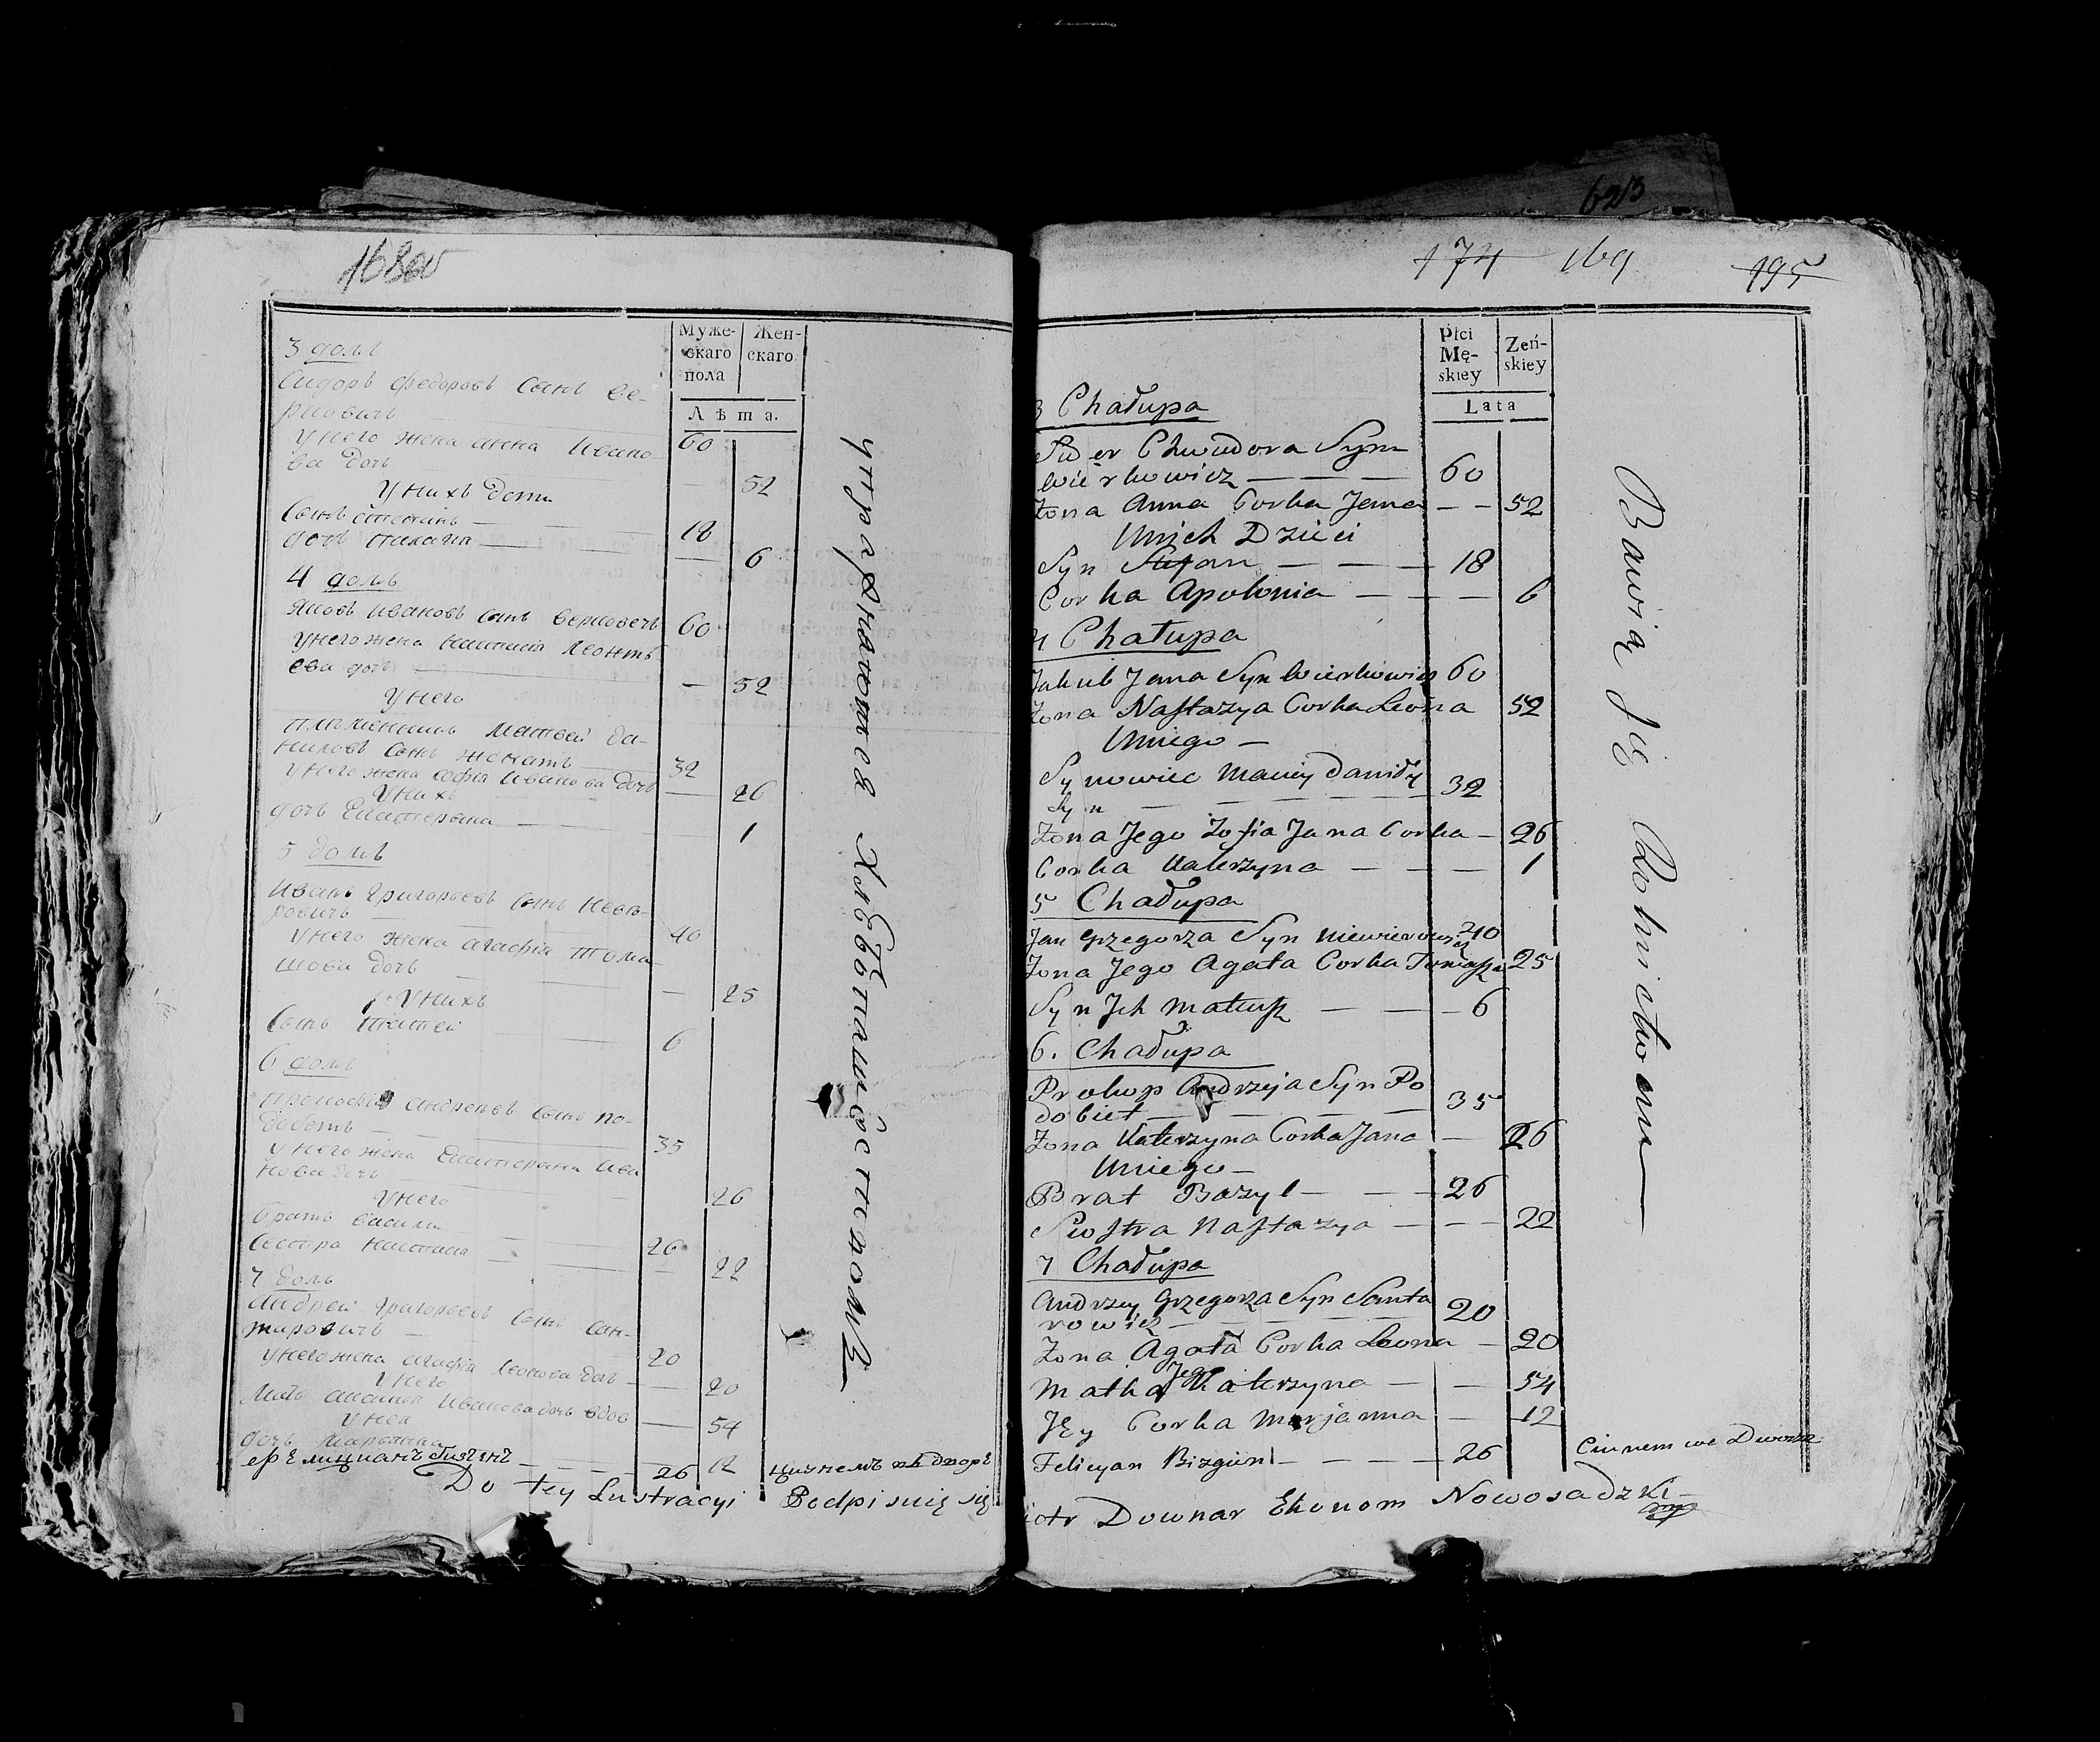 168 об
Муже-
скаго
пола
Жен-
скаго
Лѣта.
3 домъ
Сидоръ Федоровъ сынъ Ве-
рковичъ — 60
У него жена Анна Ивано-
ва дочь — 52
У нихъ дети
Сынъ Степанъ — 18
дочь Палагия — 6
4 домъ
Яковъ Ивановъ сынъ Верковичъ 60
У него жена Настасия Леонть-
ева дочь — 52
У него
племянникъ Матвей Да-
ниловъ сынъ женатъ 32
У него жена София Иванова дочь 26
У нихъ
дочь Екатерина — 1
5 домъ
Иванъ Григорьевъ сынъ Неве-
ровичъ — 40
У него жена Агафия Тома-
шова дочь — 25
У нихъ
Сынъ Матвей 6
6 домъ
Прокофий Андреевъ сынъ По-
добетъ — 35
У него жена Екатерина Ива
нова дочь 26
У него
братъ Василий 26
Сестра Настасия 22
7 домъ
Андрей Григорьевъ сынъ Сан-
тировичъ — 20
У него жена Агафия Леонова доч — 20
У него
Иванова дочь вдов — 54
У нея
дочь Марьянна 12
Фелициянъ — 26
Do tey Lustracyi Podpisuię się
упражняются Хлѣбопашествомъ
174 169 195
623
Płci
Mę-
skiey
Zeń-
skiey
Lata
3 Chałupa
Sider Chwudora Syn
Wierkowicz — — — 60
Zona Anna Corka Jana — — 52
Unich Dzieci
Syn Stefan — — — 18
Corka Apolonia — — — 6
4 Chałupa
Jakub Jana Syn Wierkowicz 60
Zona Nastazya Corka Leona 52
Uniego —
Synowiec Maciey Daniły
Syn — — — — 32
Zona Jego Zofia Jana Corka — 26
Corka Katerzyna — — — 1
5 Chałupa
Jan Grzegorza Syn Niewierowicz 40
Zona Jego Agata Corka Tomasza 25
Syn Ich Mateusz — — — 6
6. Chałupa
Prokop Andrzeja Syn Po
dobiet — — — — 35
Zona Katerzyna Corka Jana — 26
Uniego —
Brat Bazyl — — — 26
Siostra Nastazya — — — 22
7 Chałupa
Andrzey Grzegorza Syn Santa
rowicz — — — — 20
Zona Agata Corka Leona — 20
Matka Jego Katerzyna — — 54
Jey Corka Marjanna — 12
Felicyan Bizgun — — — — 26
Piotr Downar Ekonom Nowosadzki
Bawią Się Rolnictwem